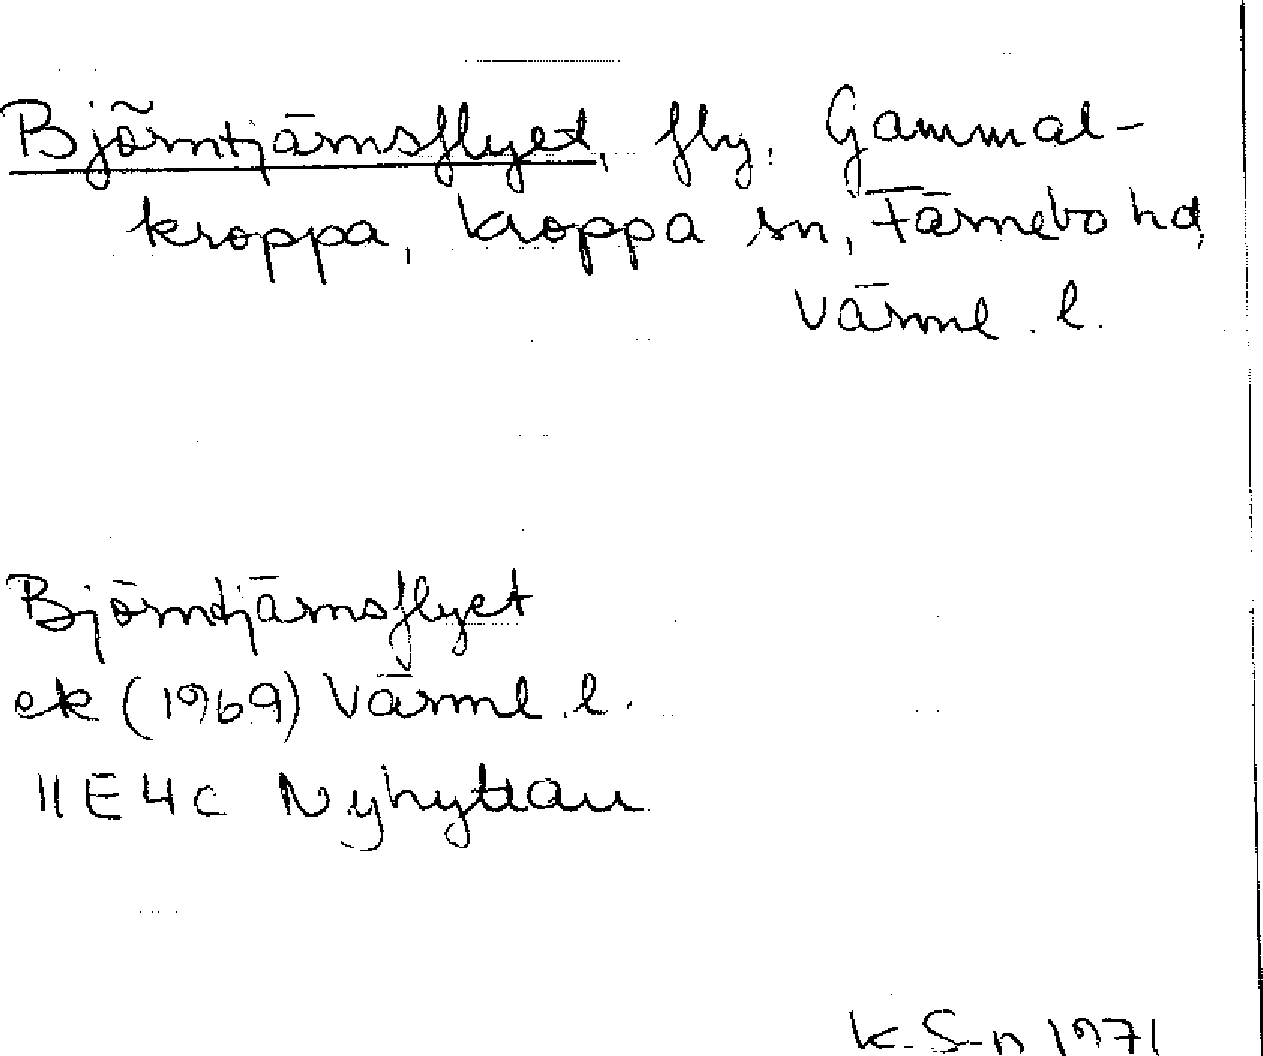 Björntjärnsflyet, fly, Gammal-
kroppa, Kroppa sn, Färnebo hd,
Värml. l.
Björntjärnsflyet
ek (1969) Värml. l.
11E4c Nyhyttan
K. S-n 1971